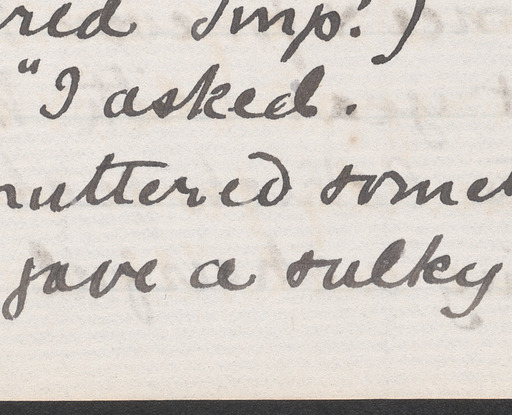 red Imp!)
"I asked.
muttered somet
gave a sulky